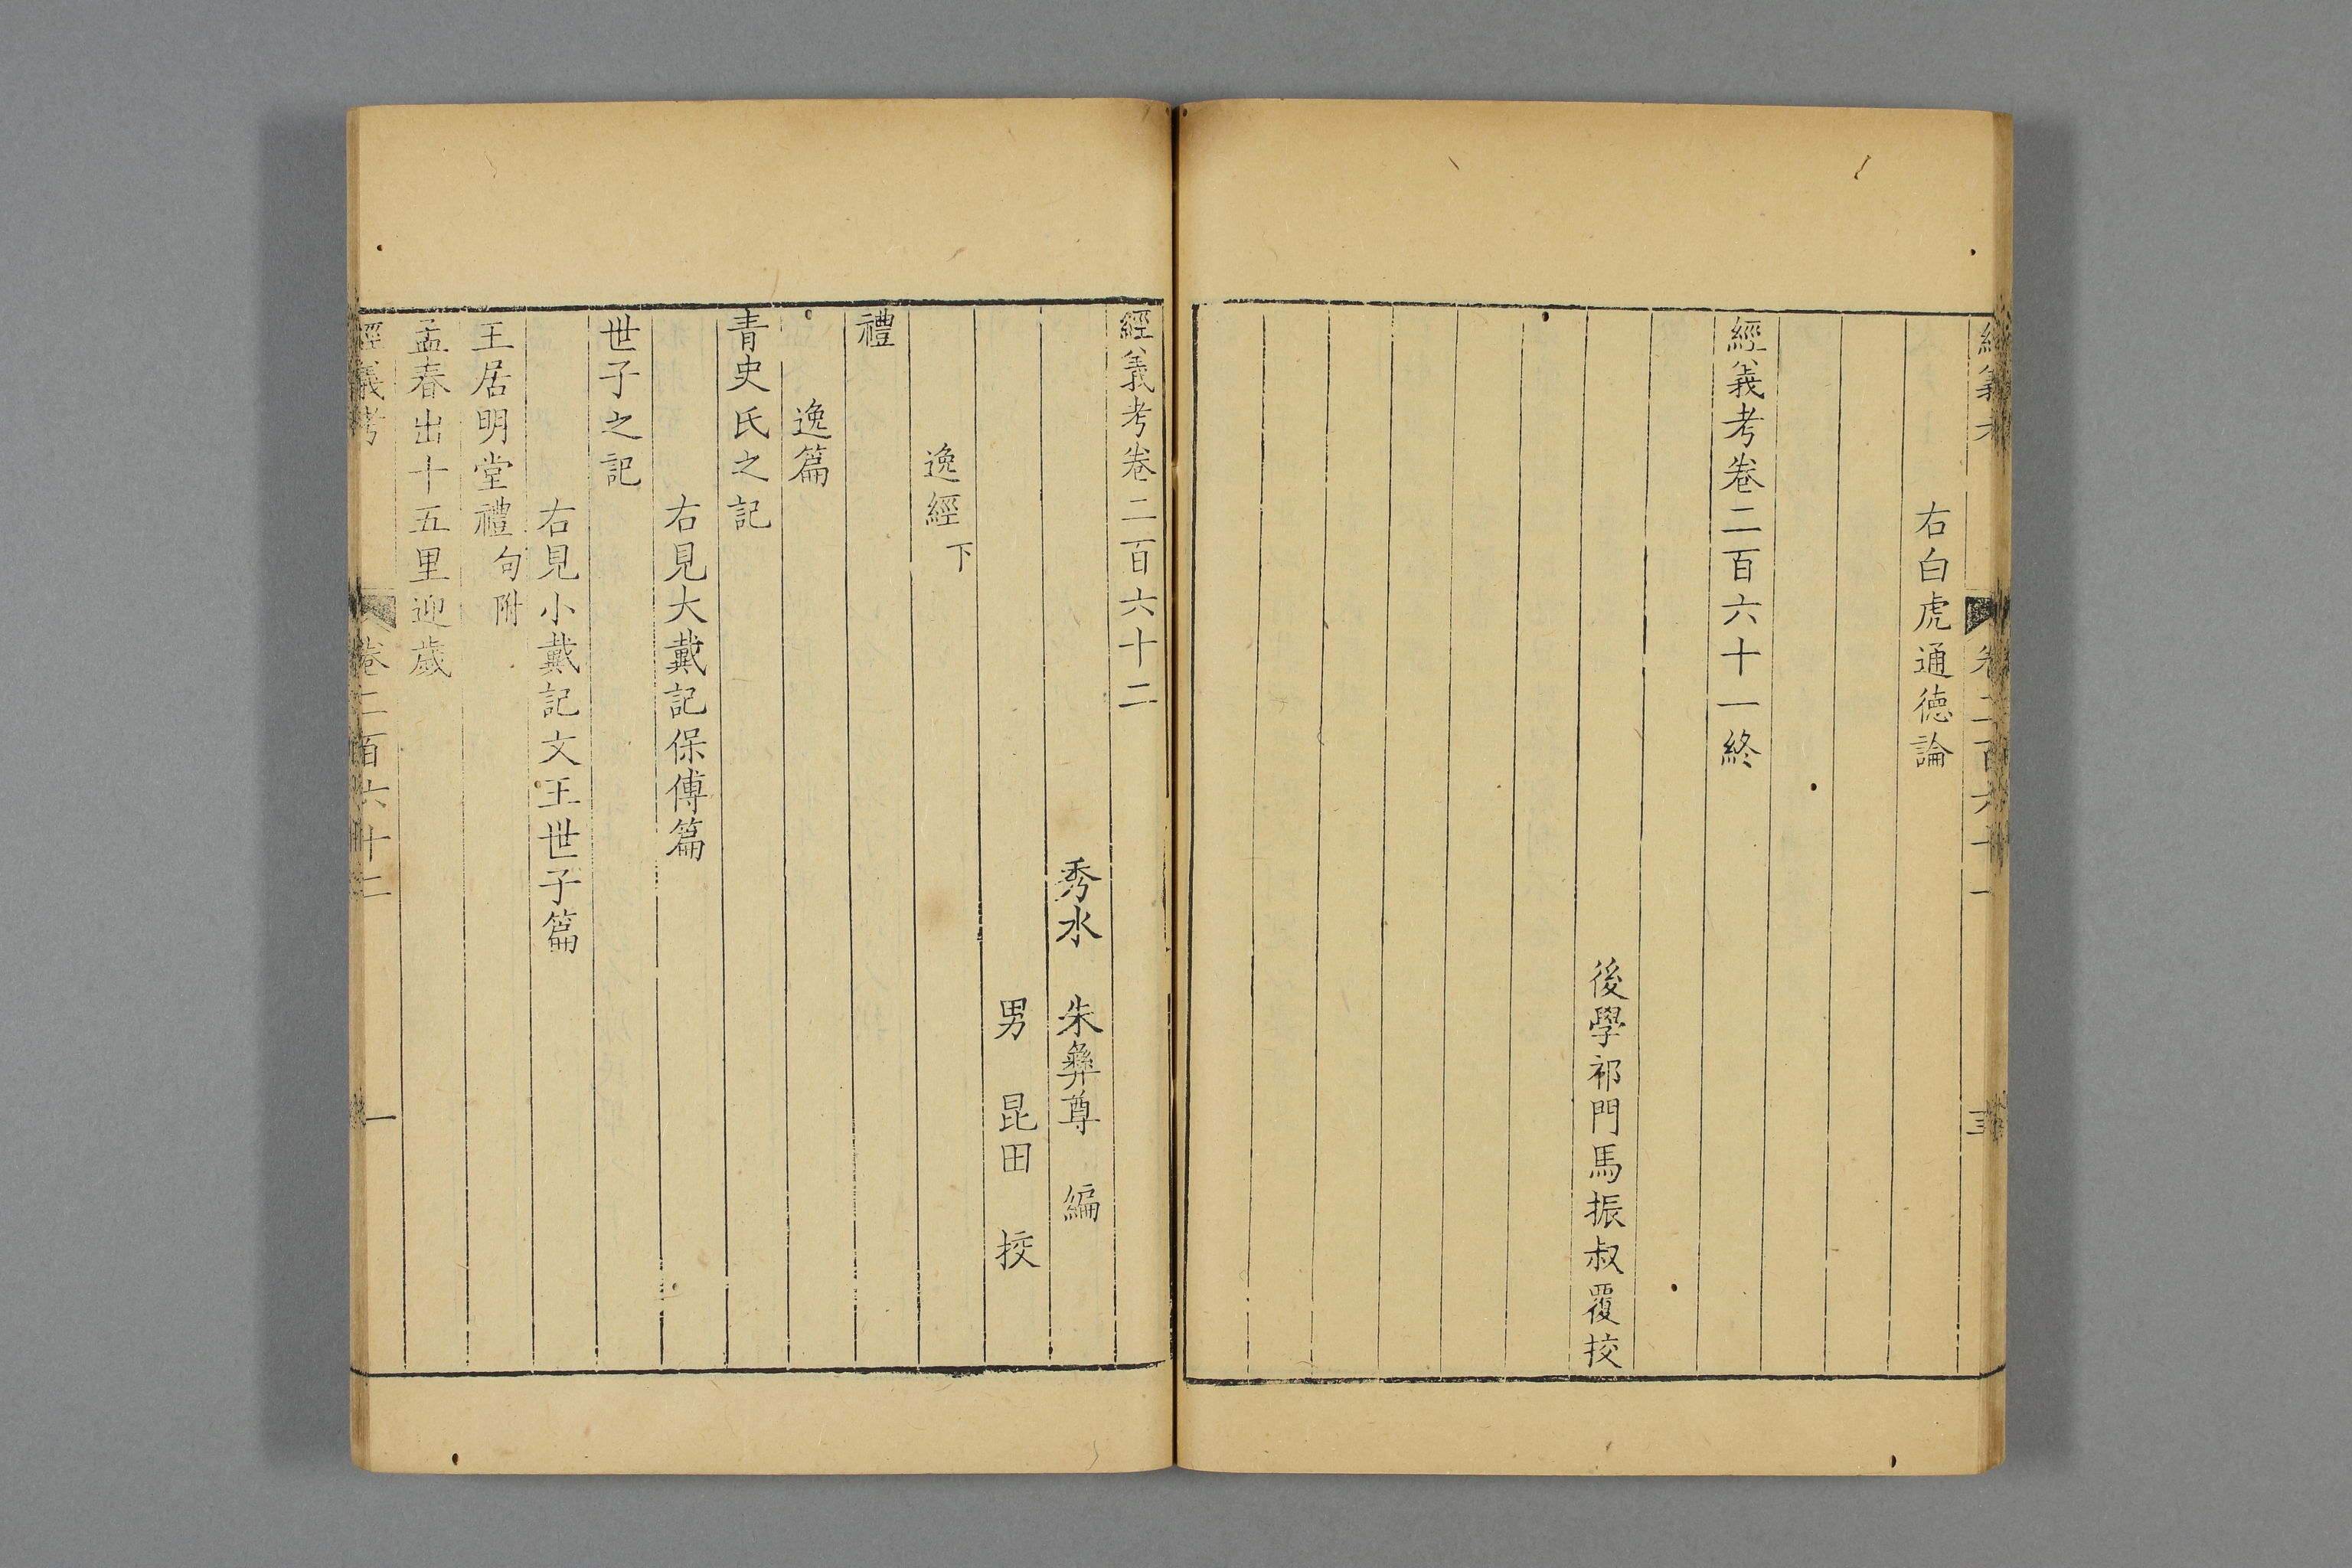 右白虎通德論
經義考卷二百六十一終
後學祁門馬振叔覆挍
經義考卷二百六十二
秀水 朱彝尊 編
男 昆田 挍
逸經下
禮
逸篇
青史氏之記
右見大戴記保傅篇
世子之記
右見小戴記文王世子篇
王居明堂禮句附
孟春出十五里迎歲
經義考 卷二百六十二 一